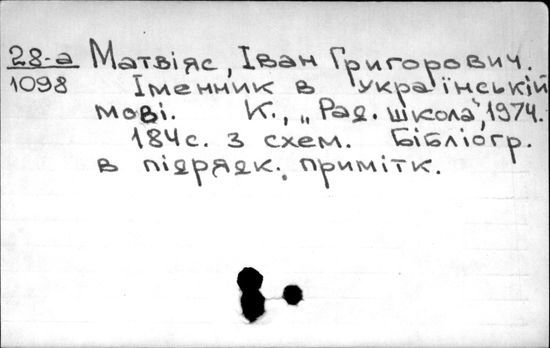 28-а Матвіяс, Іван Григорович.
1098 Іменник в українській
мові. К., „Рад. школа", 1974.
184 с. з схем. Бібліогр.
в підрядк. примітк.